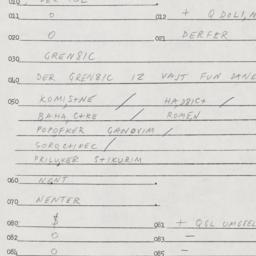 010 DER TOL
011 0 012 + Q DOLI, M
020 0 021 DERFER
030 GREN8IC
040 DER GREN8IC IZ VAJT FUN DANE
050 KOMIS+NE / HADBICT /
BAHA, C+KE / ROMEN
POPOFKER GANDVIM /
SOROCHINEC /
PRILUKER STIKURIM
060 NGNT
070 NENTER
080 $ 081 + QSL UMGEFEL
082 0 083 —
084 0 085 —